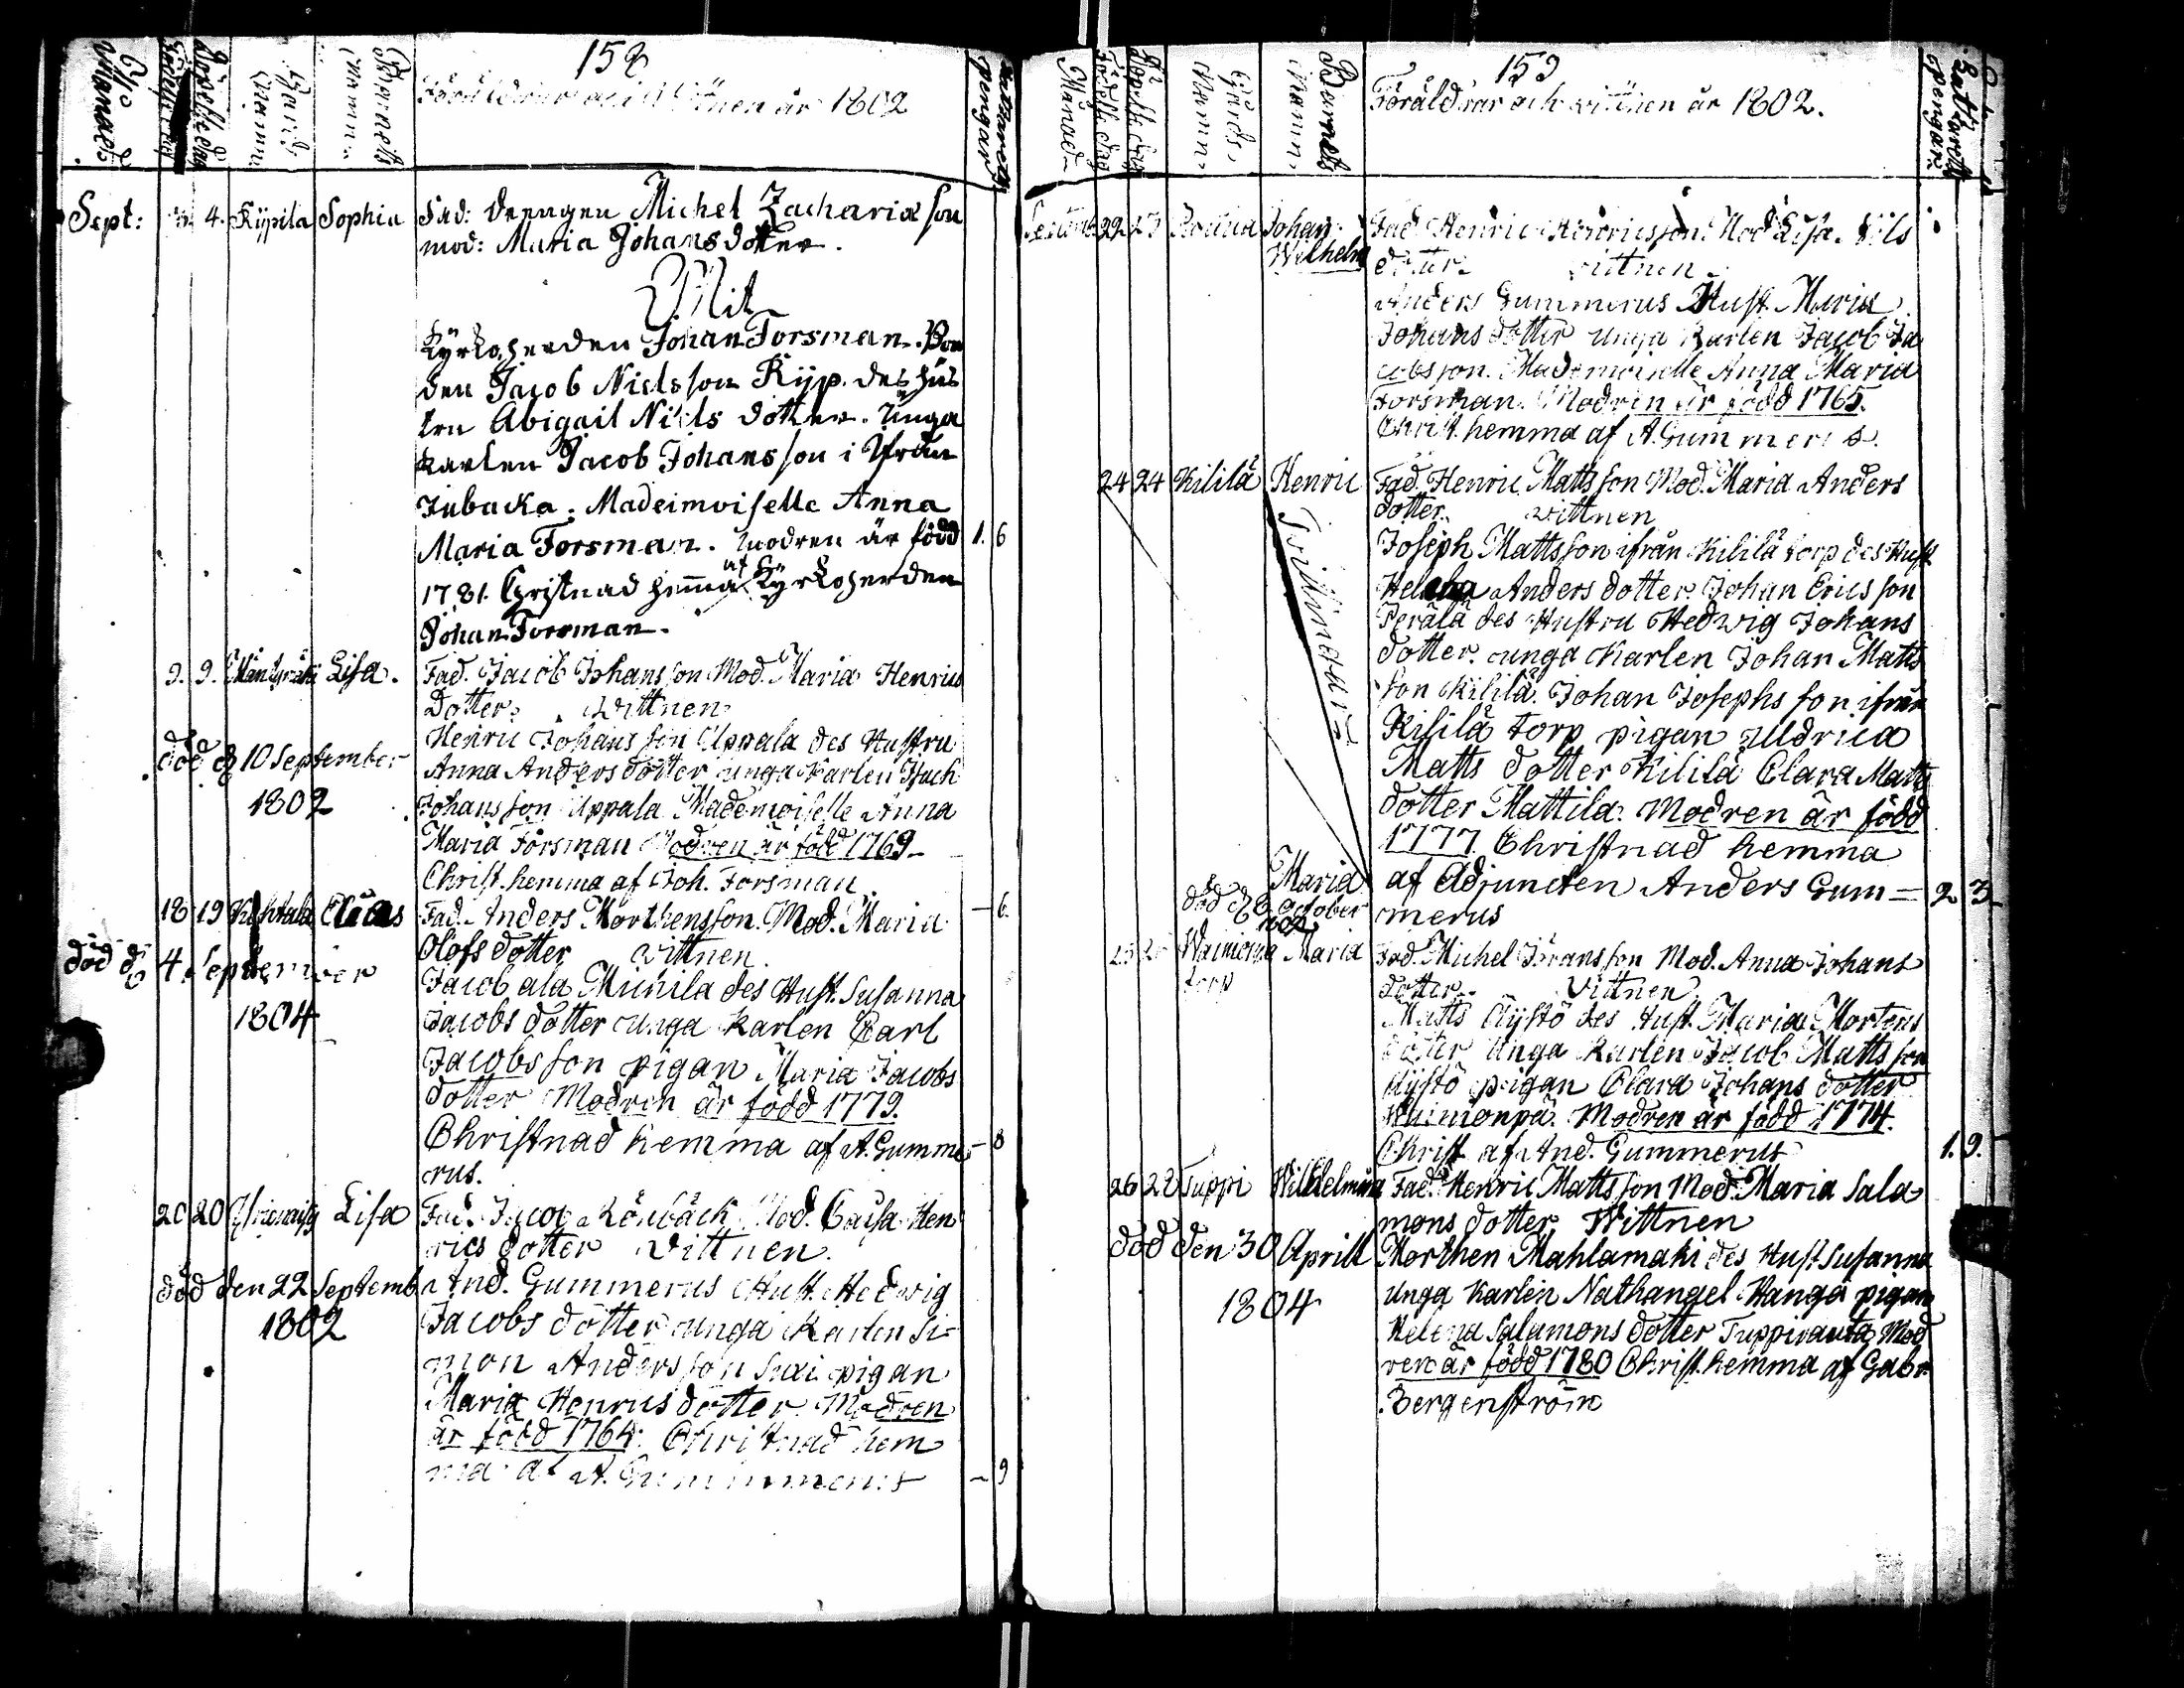 152
Månad
Födelse dag
Döpelse dag
Gårds Namn
Barnets Namn
Föräldrar och Vitnen år 1802
pengar
Sept: 3. 4. Kÿpilä Sophia Fad: drengen Michel Zachariæ son
mod: Maria Johans dotter.
Vit
Kÿrkoherden Johan Forsman. Bon
den Jacob Niels son Kÿp. des hus
tru Abigail Niels dotter. Unga
karlen Jacob Johans son ifrån
Jubacka. Madeimoiselle Anna
Maria Forsman. modren är född 1. 6
1781. Christnad hema af Kÿrkoherden
Johan Forsman.
9. 9. Mäntyranda Lisa. Fad. Jacob Johans son Mod. Maria Henrics
dotter. Wittnen
Henric Johans son Uppala des Hustru
död d 10 September
Anna Anders dotter unga Karlen Isach
1802
Johans son Uppala Mademoiselle Anna
Maria Forsman Modren är född 1769
Christ. hemma af Joh. Forsman - 6.
18 19 Huhtala Elias Fad. Anders Morthensson. Mod. Maria
Olofs dotter vittnen.
död d 4 September
Jacob ala Miinila des Hust. Susanna
1804
Jacobs dotter unga Karlen Carl
Jacobs son pigan Maria Jacobs
dotter Modren är född 1779.
Christnad hemma af A. Gumme - 8
rus.
20 20 Lisa Fad. Jacob Rönbäck Mod. Caisa Hen
rics dotter Vittnen.
död den 22 Septemb.
And. Gummerus Hust. Hedwig
1802
Jacobs dotter unga Karlen Si-
mon Anders son Suxi pigan
Maria Henrics dotter. Modren
är född 1764. Christnad hem
ma af A. Gummmerus - 9
153
Månad
Födelse dag
Döpelse dag
Gårds Namn
Barnets Namn
Föräldrar och vittnen år 1802.
pengar
Septemb. 22 23 Johan Fad. Henric Henrics son Mod Lisa. Nils
Wilhelm dotter. vittnen.
Anders Gummerus Hust. Maria
Johans dotter unga Karlen Jacob Ja
cobs son. Mademoiselle Anna Maria
Forsman. Modren är född 1765.
Christ. hemma af A. Gummerus.
24 24 Kililä Henric Fad. Henric Matts son Mod. Maria Anders
dotter. vittnen
Tvillingar
Joseph Matts son ifrån Kililä torp des Hust
Helena Anders dotter Johan Erics son
Perälä des Hustru Hedwig Johans
dotter. unga Karlen Johan Matts
son Kililä. Johan Josephs son ifrån
Kililä torp pigan Uldrica
Matts dotter Kililä Clara Matts
dotter Mattila. Modren är född
1777 Christnad hemma
Maria af Adjuncten Anders Gum= 2 3
död d 6 October
1802
merus
25 Wainionpä Maria Fad. Michel Jörans son Mod. Anna Johans
torp dotter. Vittnen
Matts Rystö des Hust. Maria Mortens
dotter Unga Karlen Jacob Matts son
Rystö pigan Clara Johans dotter
Wainionpä. Modren är född 1774.
Christ. af And. Gummerus 1. 9.
26 28 Tuppi Wilhelmina Fad. Henric Matts son Mod. Maria Sala
mons dotter Wittnen
död den 30 Aprill
Morthen Mahlamaki des Hust Susanna
1804
Unga Karlen Nathanael Hanga pigan
Helena Salamons dotter Tuppiranta Mod
ren är född 1780 Christ. hemma af Gabr.
Bergenström